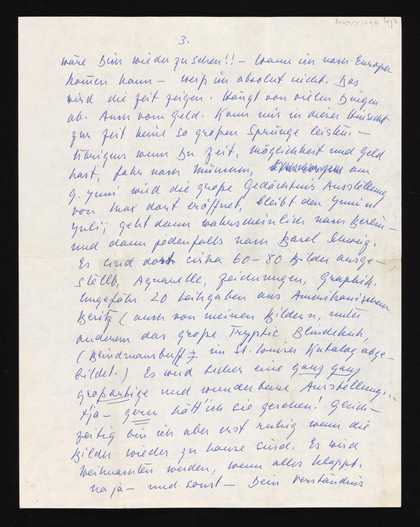 3.
wäre Dich wieder zu sehen!! – Wann ich nach Europa
kommen kann – weiss ich absolut nicht. Das
wird die Zeit zeigen. Hängt von vielen Dingen
ab. Auch vom Geld. Kann mir in dieser Hinsicht
zur Zeit keine so grossen Sprünge leisten –
Übrigens wenn Du Zeit, Möglichkeit und Geld
hast, fahr nach München, am
9. Juni wird die grosse Gedächtnis Ausstellung
von Max dort eröffnet, bleibt den Juni und
Juli, geht dann wahrscheinlich nach Berlin –
und dann jedenfalls nach Basel
Es sind dort circa 60–80 Bilder ausge-
stellt, Aquarelle, Zeichnungen, Graphik.
Ungefähr 20 Leihgaben aus Amerikanischem
Besitz (auch von meinen Bildern, unter
anderem das grosse Tryptic Blindekuh,
(Blindmansbuff) im St. Louiser Katalog abge-
bildet.) Es wird sicher eine ganz ganz
grossartige und wunderbare Ausstellung..
tja – gern hätt' ich sie gesehen! Gleich-
zeitig bin ich aber erst ruhig wenn die
Bilder wieder zu Hause sind. Es wird
Weihnachten werden, wenn alles klappt.
na ja – und sonst – Dein Verständnis